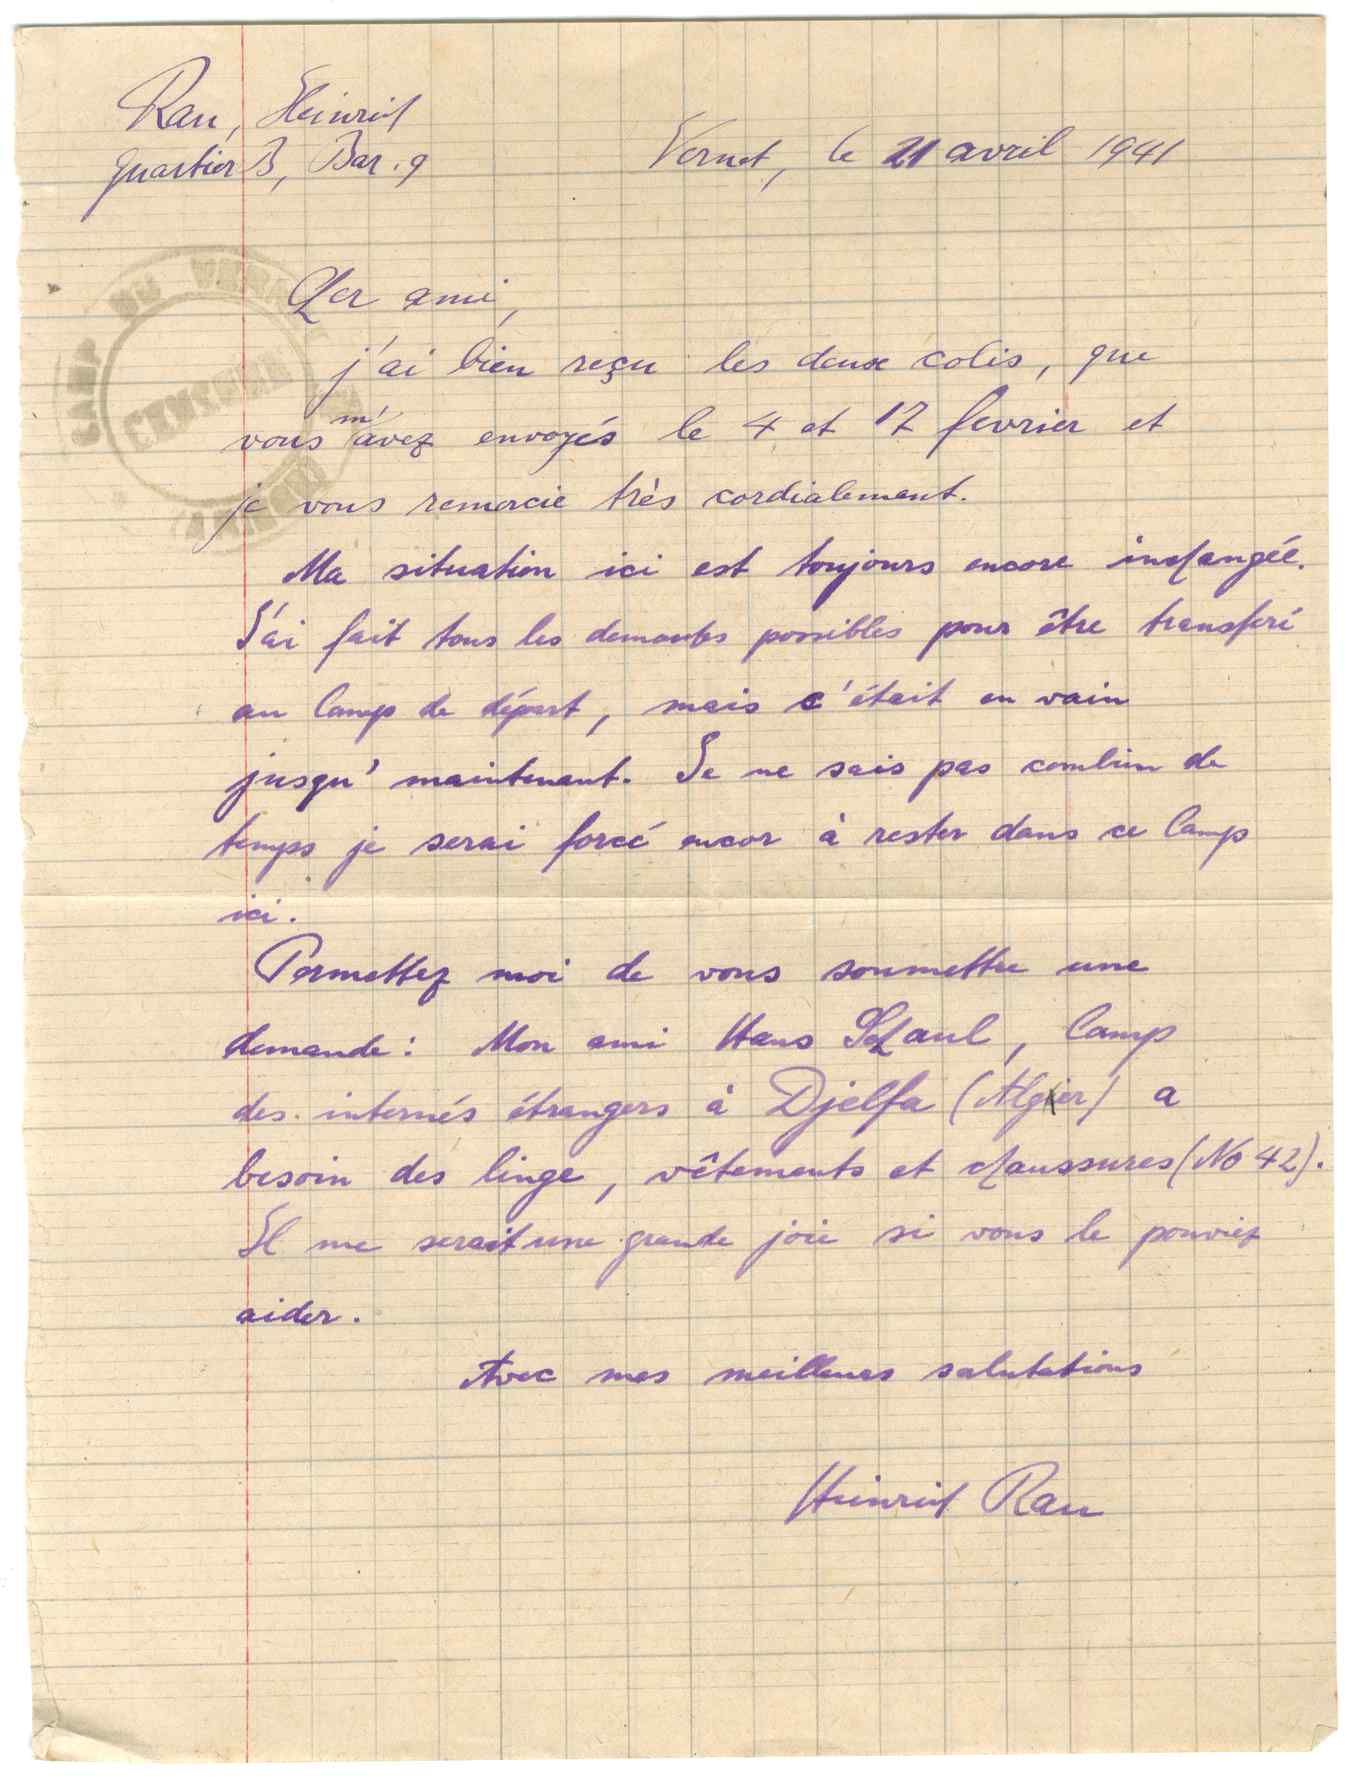 Rau, Heinrich
Quartier B, Bar. 9
Vernet, le 21 avril 1941
CAMP DU VERNET
CENSURE
Cher ami,
j'ai bien reçu les deux colis, que
vous m'avez envoyés le 4 et 17 fevrier et
je vous remercie très cordialement.
Ma situation ici est toujours encore inchangée.
J'ai fait tous les demandes possibles pour être transferé
au Camp de départ, mais c'était en vain
jusqu' maintenant. Je ne sais pas combien de
temps je serai forcé encor à rester dans ce Camp
ici.
Permettez moi de vous soumettre une
demande: Mon ami Hans Schaul, Camp
des internés étrangers à Djelfa (Alger) a
besoin des linge, vêtements et chaussures (No 42).
Il me serait une grande joie si vous le pouviez
aider.
Avec mes meilleurs salutations
Heinrich Rau